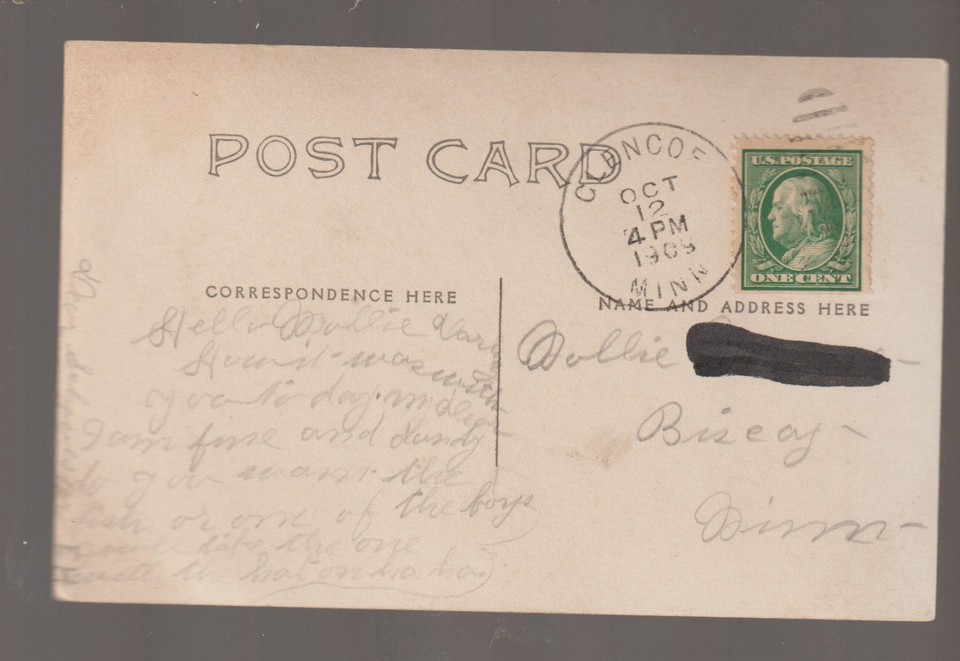 POST CARD
GLENCOE
OCT
12
4 PM
1909
MINN
U.S. POSTAGE
ONE CENT
CORRESPONDENCE HERE
NAME AND ADDRESS HERE
Hello Mollie
How it was with
you to day
I am fine and dandy
do you want the
or one of the boys
take the one
the hat on ha ha
Mollie
Biscay
Minn